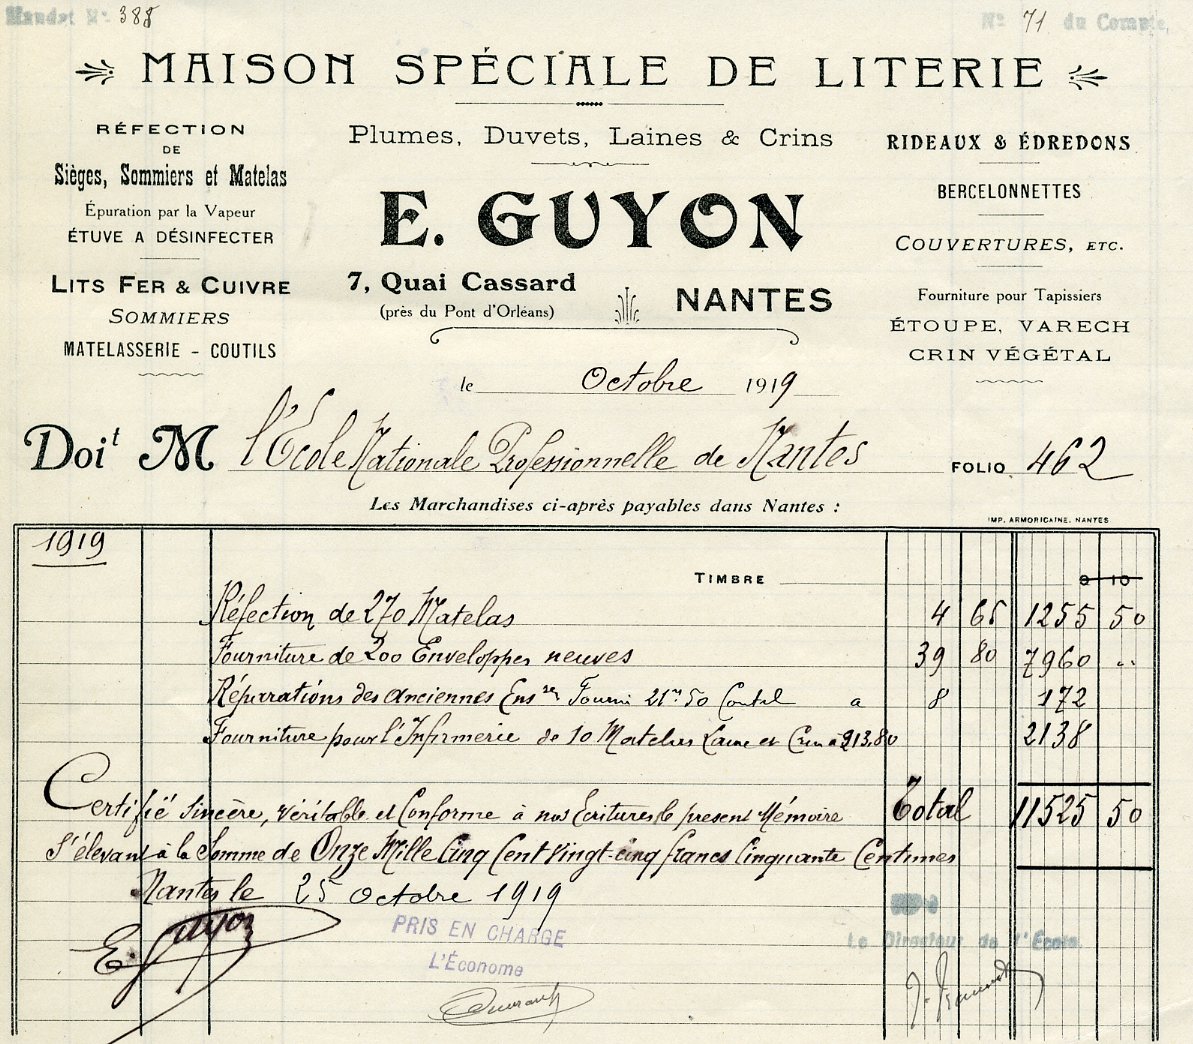 Mandat Nº 388
Nº 71 du Compte,
MAISON SPÉCIALE DE LITERIE
RÉFECTION
DE
Sièges, Sommiers et Matelas
Épuration par la Vapeur
ÉTUVE A DÉSINFECTER
LITS FER & CUIVRE
SOMMIERS
MATELASSERIE - COUTILS
Plumes, Duvets, Laines & Crins
E. GUYON
7, Quai Cassard
(près du Pont d'Orléans)
NANTES
RIDEAUX & ÉDREDONS
BERCELONNETTES
COUVERTURES, ETC.
Fourniture pour Tapissiers
ÉTOUPE, VARECH
CRIN VÉGÉTAL
le Octobre 1919
Doit M l'École Nationale Professionnelle de Nantes FOLIO 462
Les Marchandises ci-après payables dans Nantes :
IMP. ARMORICAINE. NANTES
1919
TIMBRE 0 10
Réfection de 270 Matelas 4 65 1255 50
Fourniture de 200 Enveloppes neuves 39 80 7960 "
Réparations des anciennes Ens Fourni 21m 50 Coutil a 8 172
Fourniture pour l'Infirmerie de 10 Matelas Laine et Crin à 213.80 2138
Certifié sincère, véritable et Conforme à nos Ecritures le présent Mémoire Total 11525 50
S'élevant à la Somme de Onze Mille Cinq Cent Vingt-cinq francs Cinquante Centimes
Nantes le 25 octobre 1919
E. Guyon
PRIS EN CHARGE
L'Économe
Le Directeur de l'École